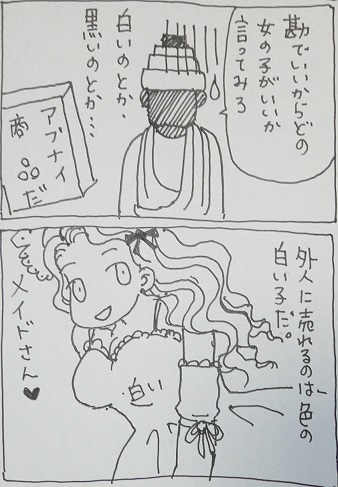 勘でいいからどの
女の子がいいか
言ってみろ
白いのとか、
黒いのとか…
アブナイ
商品だ
外人に売れるのは、色の
白い子だ。
白い
メイドさん♥